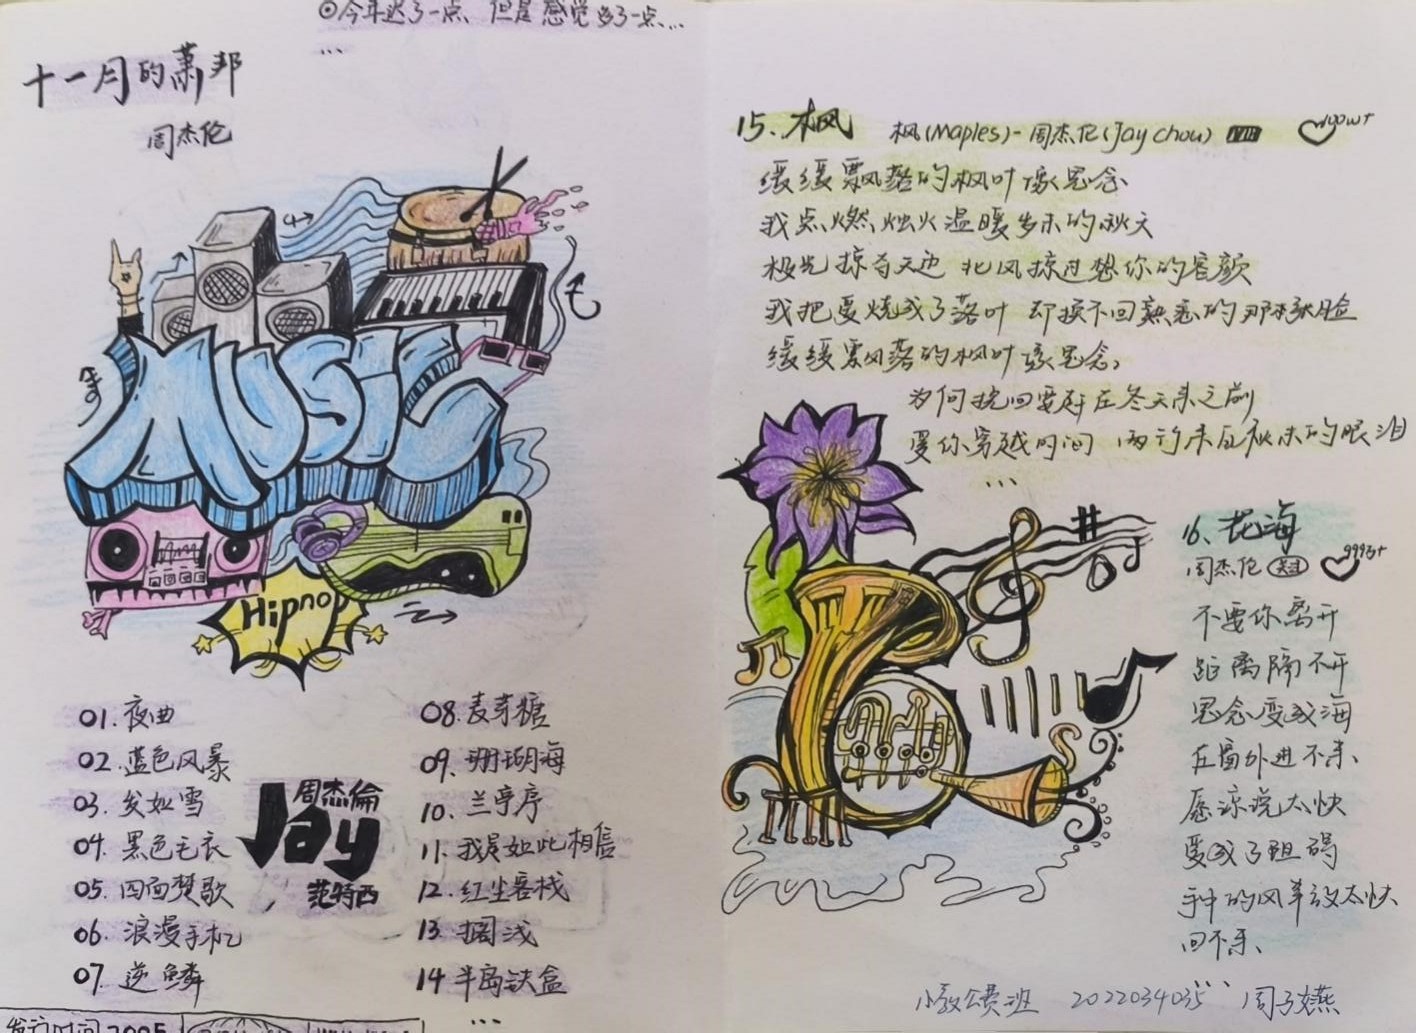 ⊙今年迟了一点、但是感觉多了一点...
...
十一月的萧邦
周杰伦
MUSIC
Hiphop
01.夜曲
02.蓝色风暴
03.发如雪
04.黑色毛衣
05.四面楚歌
06.浪漫手机
07.逆鳞
周杰倫
Jay
,范特西
08.麦芽糖
09.珊瑚海
10.兰亭序
11.我是如此相信
12.红尘客栈
13.搁浅
14半岛铁盒
...
发行时间2005
15.枫 枫(Maples)-周杰伦(Jay chou) VIP 100w+
缓缓飘落的枫叶像思念
我点燃烛火温暖岁末的秋天
极光掠夺天边 北风掠过想你的容颜
我把爱烧成了落叶 却换不回熟悉的那张脸
缓缓飘落的枫叶像思念,
为何挽回要赶在冬天来之前
爱你穿越时间 两行来自秋末的眼泪
...
16.花海
周杰伦 999w+
不要你离开
距离隔不开
思念变成海
在窗外进不来、
原谅说太快
爱成了阻碍
手中的风筝放太快
回不来、
...
小教公费班 2022034035 周子燕